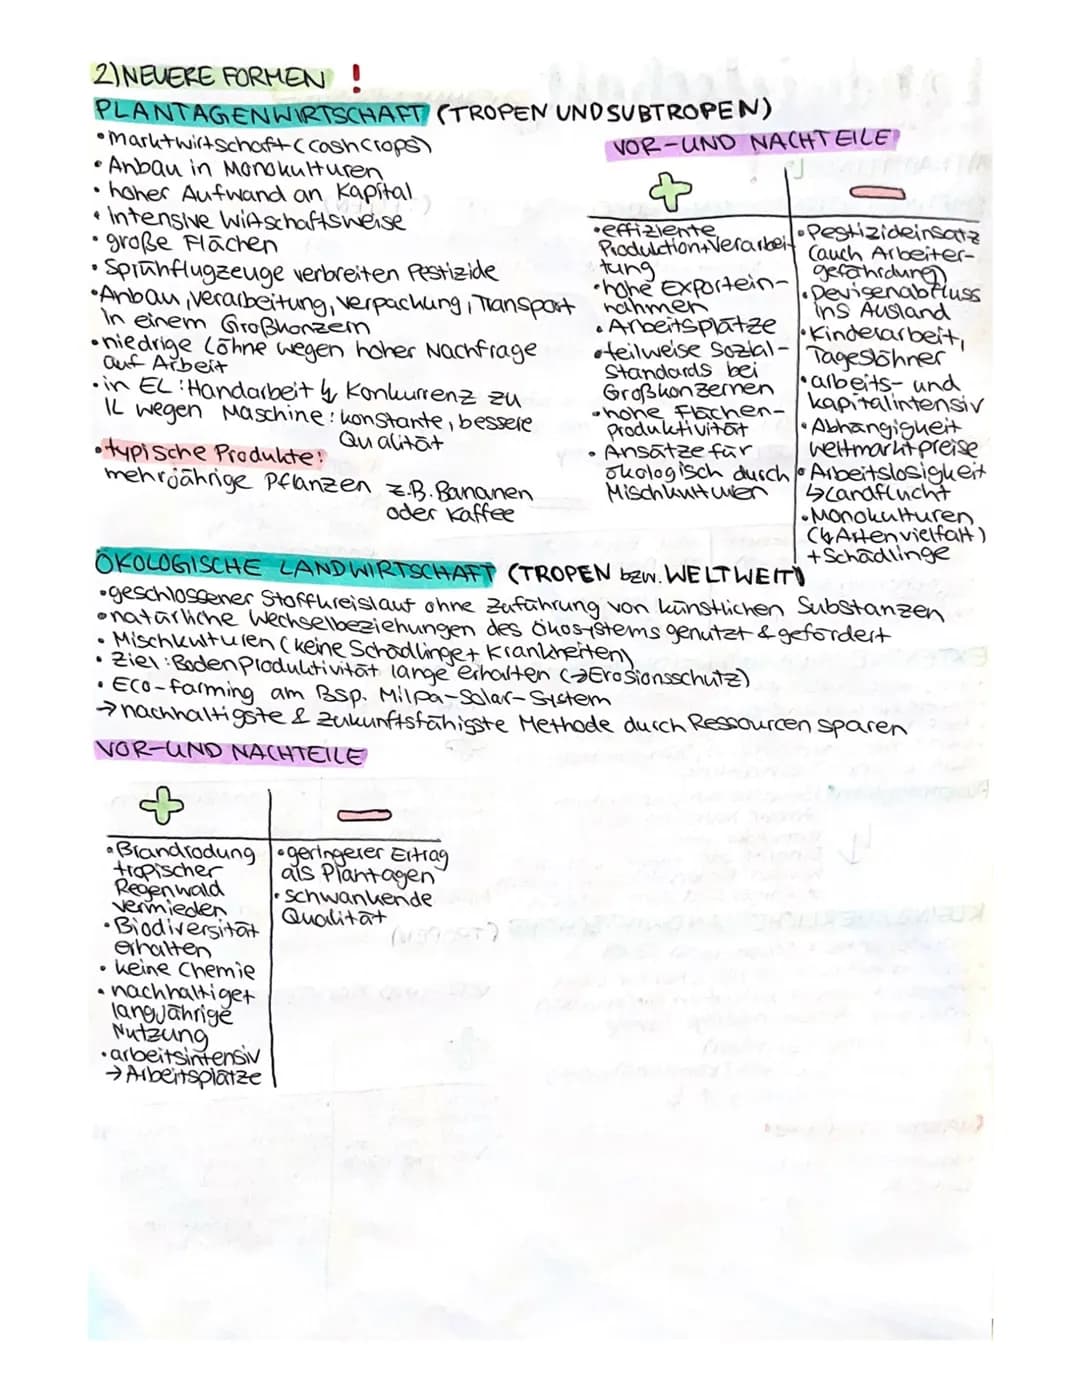 2) NEUERE FORMEN !
PLANTAGENWIRTSCHAFT (TROPEN UND SUBTROPEN)
• Marktwirtschaft (cash crops)
• Anbau in Monokulturen
• hoher Aufwand an Kapital
• intensive Wirtschaftsweise
• große Flächen
• Sprühflugzeuge verbreiten Pestizide
• Anbau, Verarbeitung, Verpackung, Transport
in einem Großkonzern
• niedrige Löhne wegen hoher Nachfrage
auf Arbeit
• in EL: Handarbeit ↳ Konkurrenz zu
IL wegen Maschine: konstante, bessere
Qualität
• typische Produkte:
mehrjährige Pflanzen z.B. Bananen
oder Kaffee
VOR- UND NACHTEILE
+
• effiziente
Produktion + Verarbei-
tung
• hohe Exportein-
nahmen
• Arbeitsplätze
• teilweise Sozial-
Standards bei
Großkonzernen
• hohe Flächen-
produktivität
• Ansätze für
ökologisch durch
Mischkulturen
−
• Pestizideinsatz
(auch Arbeiter-
gefährdung)
• Devisenabfluss
ins Ausland
• Kinderarbeit,
Tageslöhner
• arbeits- und
kapitalintensiv
• Abhängigkeit
Weltmarktpreise
• Arbeitslosigkeit
↳ Landflucht
• Monokulturen
(↯ Artenvielfalt)
+ Schädlinge
ÖKOLOGISCHE LANDWIRTSCHAFT (TROPEN bzw. WELTWEIT)
• geschlossener Stoffkreislauf ohne Zuführung von künstlichen Substanzen
• natürliche Wechselbeziehungen des Ökosystems genutzt & gefördert
• Mischkulturen (keine Schädlinge + Krankheiten)
• Ziel: Bodenproduktivität lange erhalten (→ Erosionsschutz)
• Eco-farming am Bsp. Milpa-Solar-System
→ nachhaltigste & zukunftsfähigste Methode durch Ressourcen sparen
VOR- UND NACHTEILE
+
• Brandrodung
tropischer
Regenwald
vermieden
• Biodiversität
erhalten
• keine Chemie
• nachhaltiget
langjährige
Nutzung
• arbeitsintensiv
→ Arbeitsplätze
−
• geringerer Ertrag
als Plantagen
• schwankende
Qualität